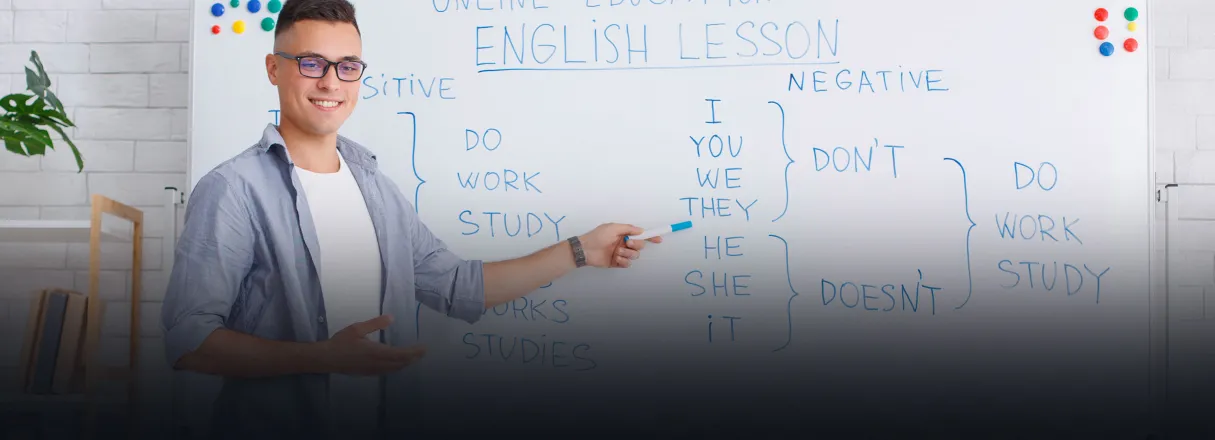 ONLINE EDUCATION
ENGLISH LESSON
NEGATIVE
DO
WORK
STUDY
STUDIES
I
YOU
WE
THEY
HE
SHE
IT
DON'T
DOESN'T
DO
WORK
STUDY